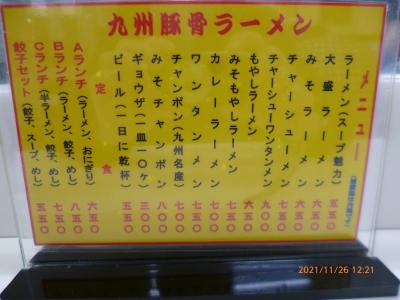 九州豚骨ラーメン
メニュー
ラーメン(スープ魅力) 五五〇
大盛ラーメン 六五〇
みそラーメン 六五〇
チャーシューメン 七五〇
チャーシューワンタンメン 九〇〇
もやしラーメン 六五〇
みそもやしラーメン 七五〇
カレーラーメン 七五〇
ワンタンメン 七五〇
チャンポン(九州名産) 七五〇
みそチャンポン 八〇〇
ギョウザ(一皿一〇ヶ)
ビール(一日に乾杯) 五五〇
定食
Aランチ(ラーメン、おにぎり) 六五〇
Bランチ(ラーメン、餃子、めし) 八五〇
Cランチ(半ラーメン、餃子、めし) 七五〇
餃子セット(餃子、スープ、めし) 五五〇
2021/11/26 12:21